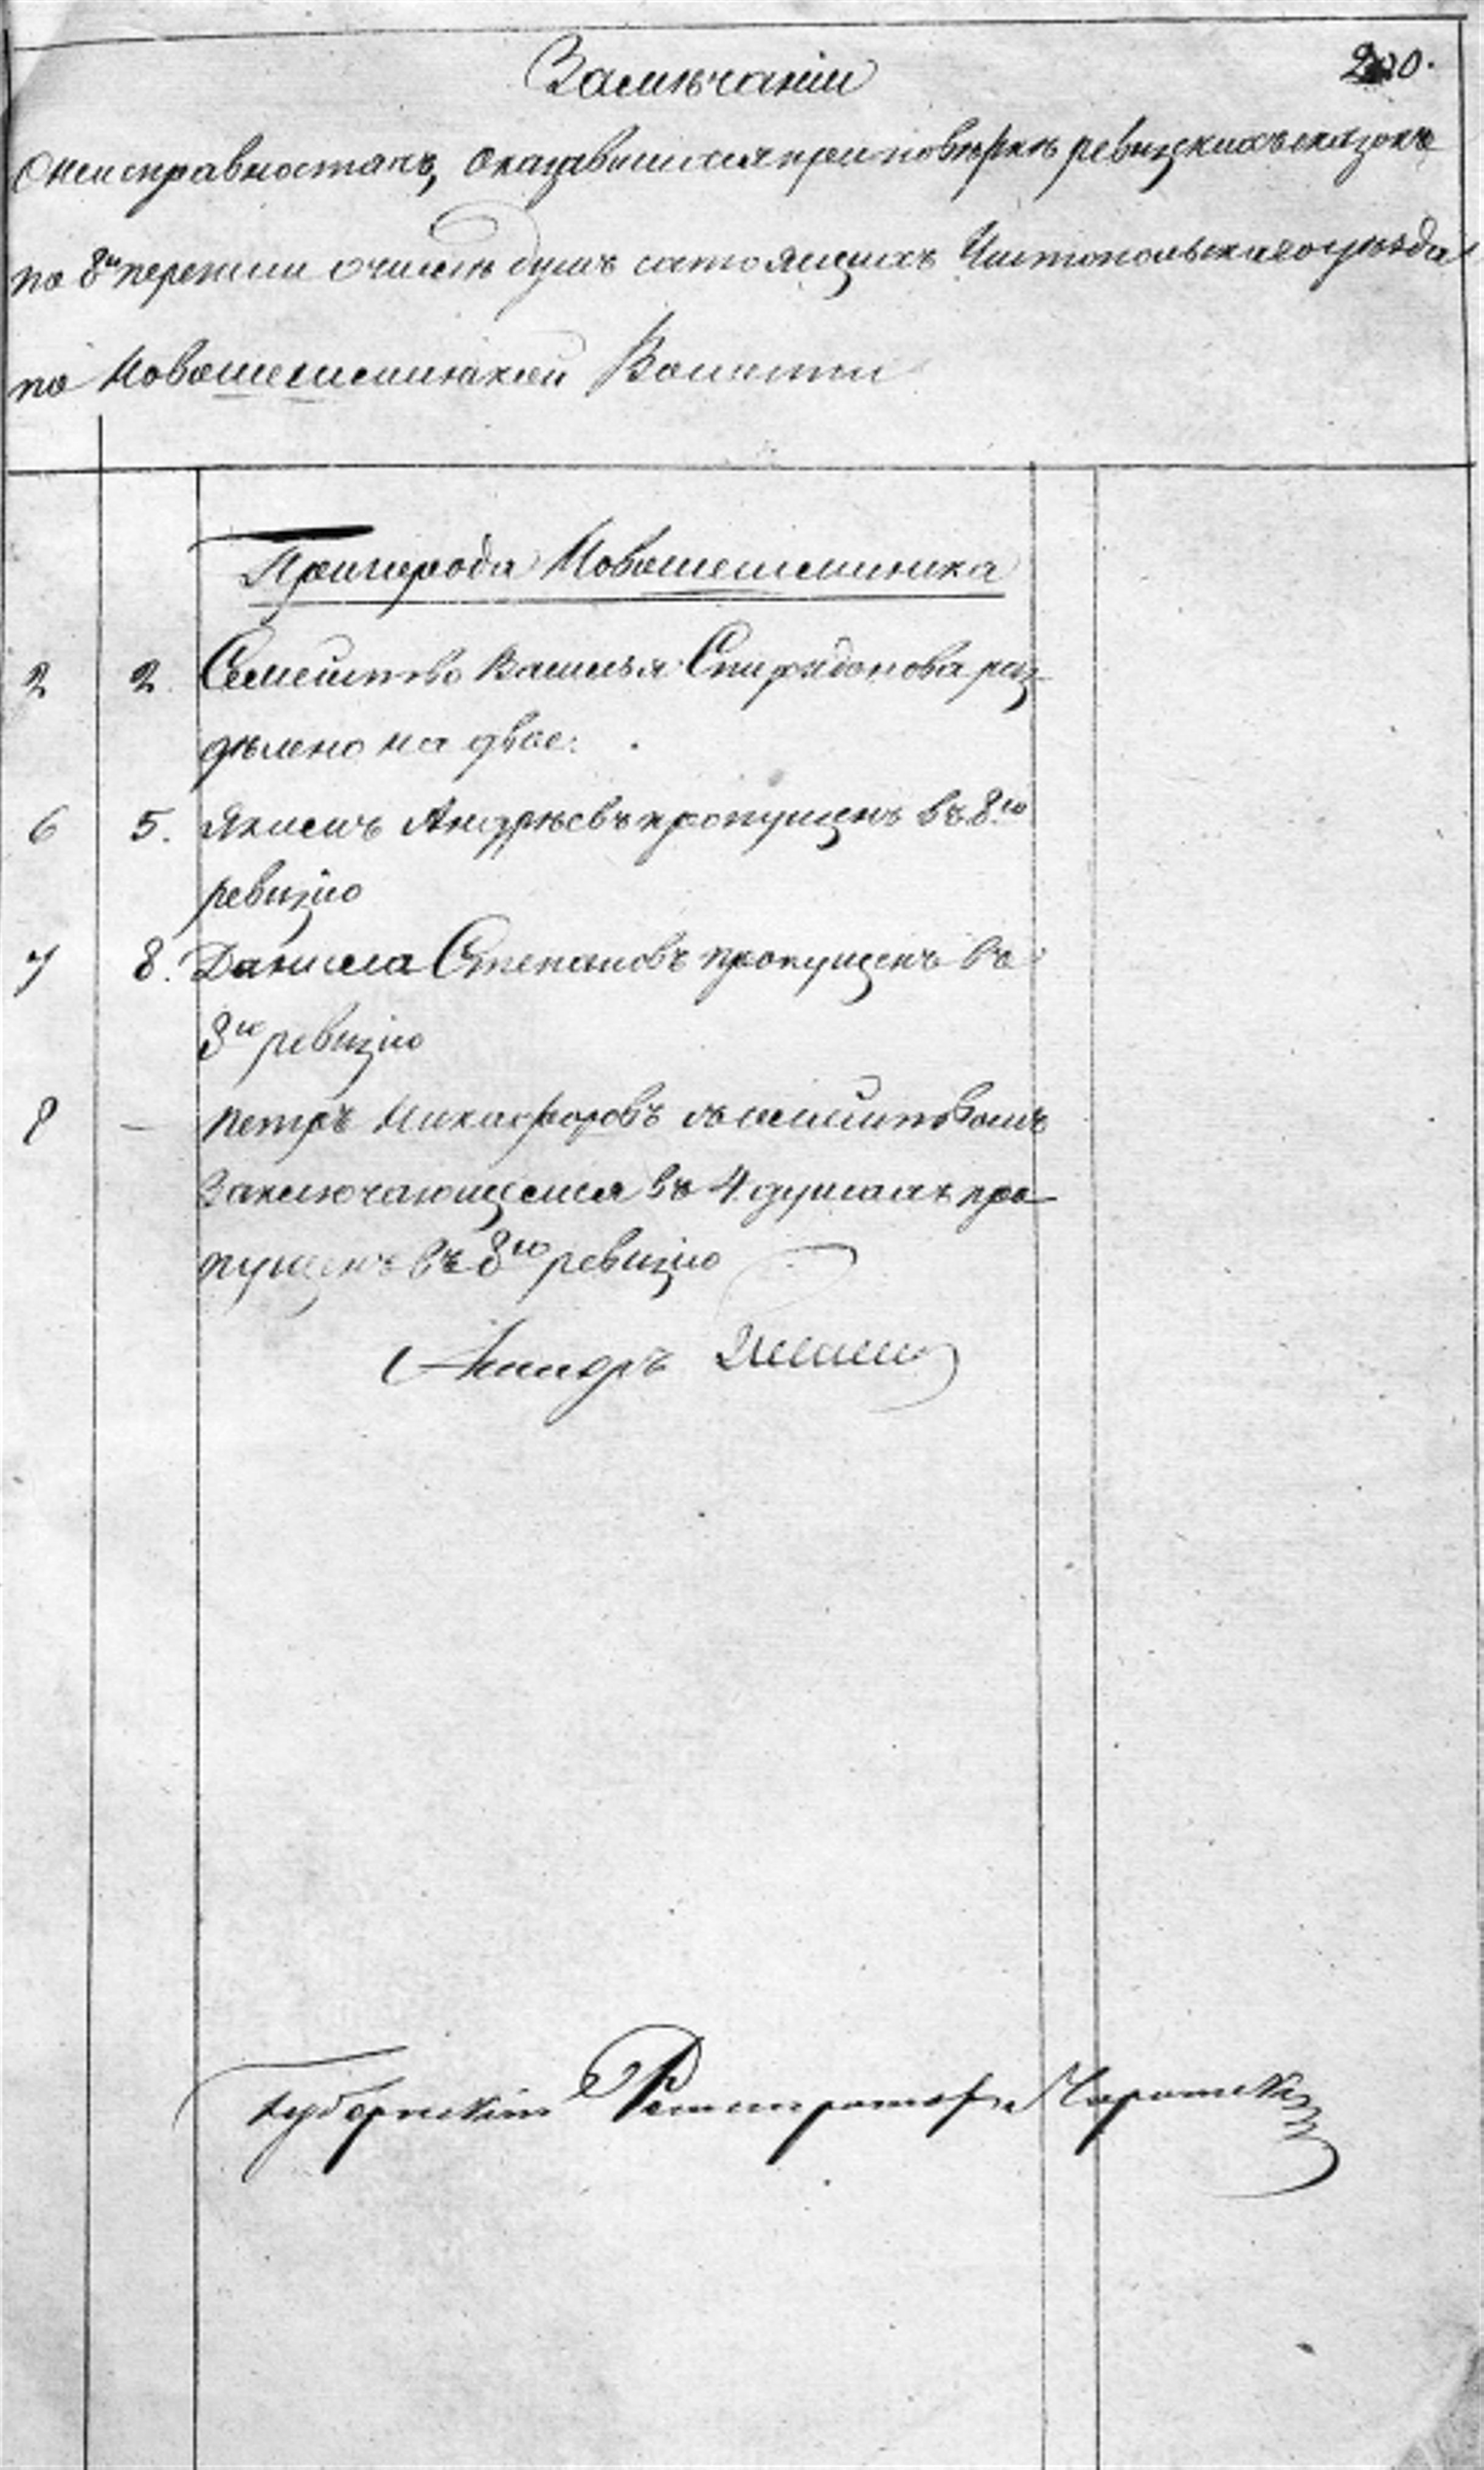 Замѣчаніи
200.
О неисправностяхъ, оказавшихся при повѣркѣ ревизскихъ сказокъ
по 8й переписи о числѣ душъ состоящихъ Чистопольскаго уѣзда
по Новошешминской Волости
Пригорода Новошешминска
2 2 Семейство Василья Спиридонова раз
дѣлено на двое.
6 5. Якимъ Андрѣевъ пропущенъ въ 8ю
ревизію
7 8. Данила Степановъ пропущенъ въ
8ю ревизію
8 — Петръ Никифоровъ съ семействомъ
заключающемся въ 4 душахъ про
пущенъ въ 8ю ревизію
Губернскій Регистраторъ